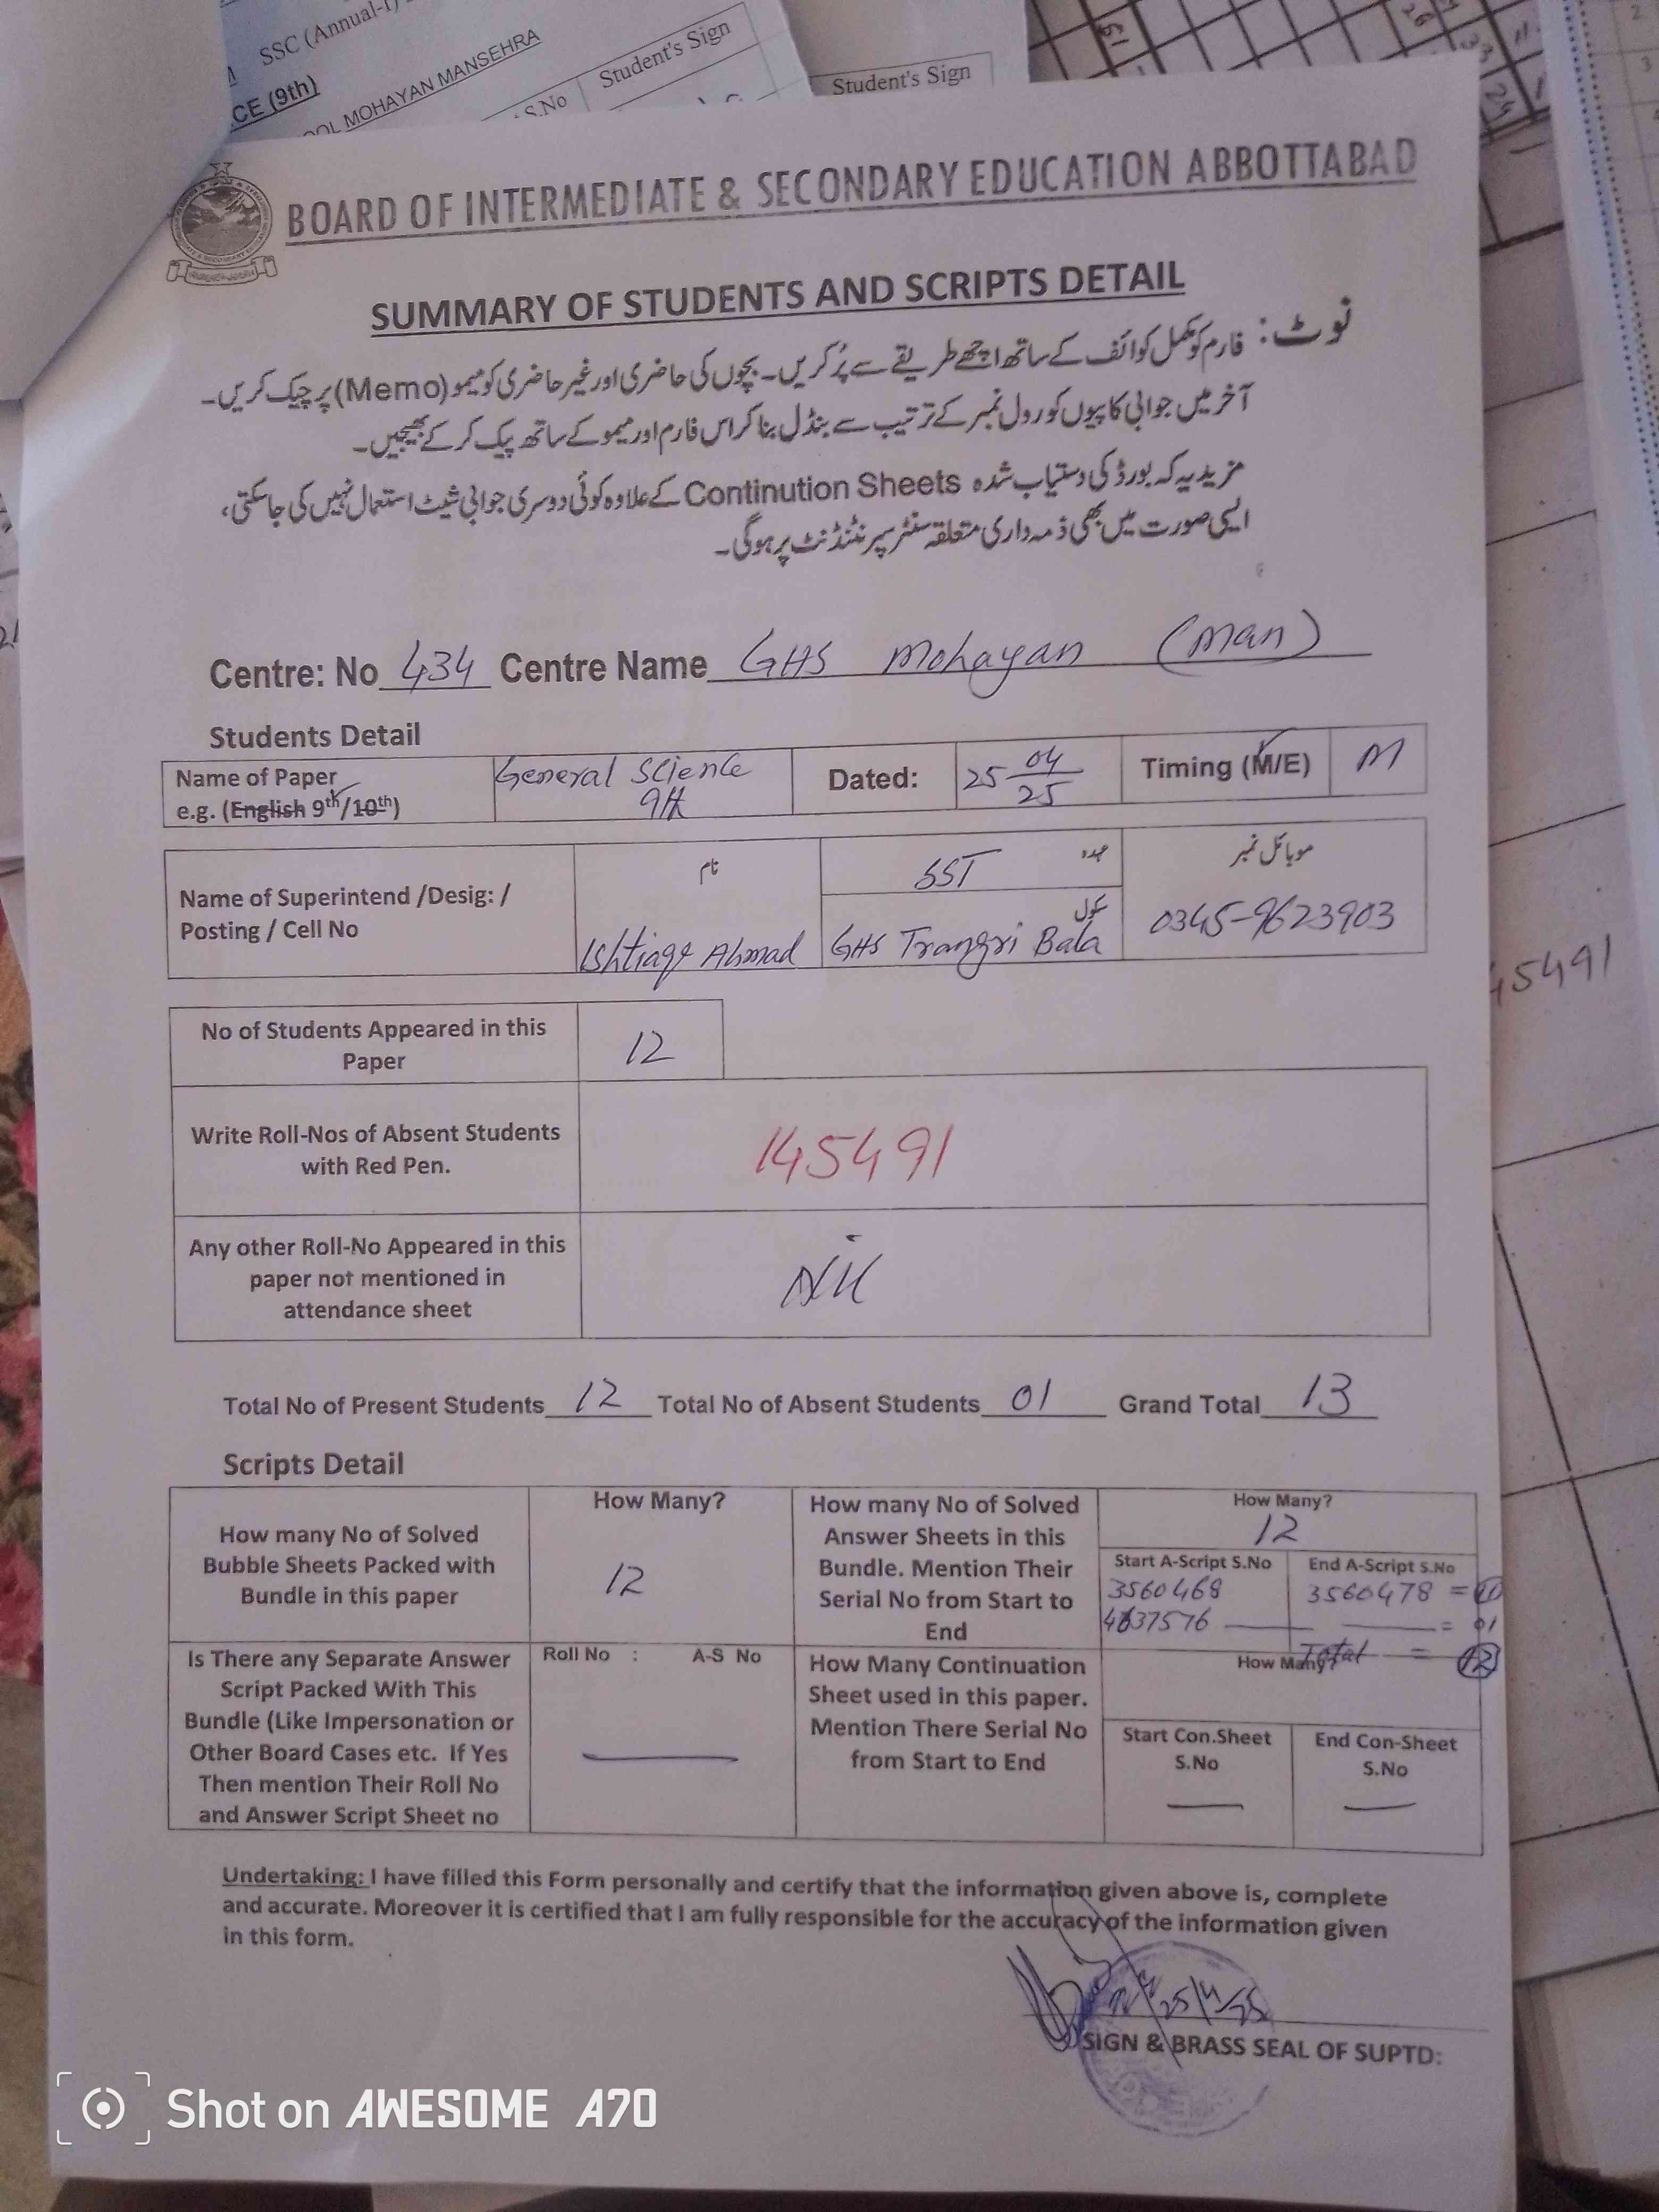 SSC (Annual-I)
CE (9th)
OOL MOHAYAN MANSEHRA
S.No Student's Sign
Student's Sign
BOARD OF INTERMEDIATE & SECONDARY EDUCATION ABBOTTABAD
SUMMARY OF STUDENTS AND SCRIPTS DETAIL
نوٹ: فارم کو مکمل کوائف کے ساتھ اچھے طریقے سے پُر کریں۔ بچوں کی حاضری اور غیر حاضری کو میمو (Memo) پر چیک کریں۔
آخر میں جوابی کاپیوں کو رول نمبر کے ترتیب سے بنڈل بنا کر اس فارم اور میمو کے ساتھ پیک کر کے بھیجیں۔
مزید یہ کہ بورڈ کی دستیاب شدہ Continution Sheets کے علاوہ کوئی دوسری جوابی شیٹ استعمال نہیں کی جاسکتی،
ایسی صورت میں بھی ذمہ داری متعلقہ سنٹر سپرنٹنڈنٹ پر ہوگی۔
Centre: No 434 Centre Name GHS Mohayan (Man)
Students Detail
Name of Paper
e.g. (English 9th/10th)
General Science
9th
Dated: 25 04 25
Timing (M/E) M
Name of Superintend /Desig: /
Posting / Cell No
نام
Ishtiaqe Ahmad
عہدہ
SST
سکول
GHS Trangri Bala
موبائل نمبر
0345-9623903
45491
No of Students Appeared in this
Paper
12
Write Roll-Nos of Absent Students
with Red Pen.
145491
Any other Roll-No Appeared in this
paper not mentioned in
attendance sheet
Nil
Total No of Present Students 12 Total No of Absent Students 01 Grand Total 13
Scripts Detail
How many No of Solved
Bubble Sheets Packed with
Bundle in this paper
How Many?
12
How many No of Solved
Answer Sheets in this
Bundle. Mention Their
Serial No from Start to
End
How Many?
12
Start A-Script S.No End A-Script S.No
3560468 3560478 = 11
4637576 = 01
Total = 12
Is There any Separate Answer
Script Packed With This
Bundle (Like Impersonation or
Other Board Cases etc. If Yes
Then mention Their Roll No
and Answer Script Sheet no
Roll No : A-S No
How Many Continuation
Sheet used in this paper.
Mention There Serial No
from Start to End
How Many?
Start Con.Sheet
S.No
End Con-Sheet
S.No
Undertaking: I have filled this Form personally and certify that the information given above is, complete
and accurate. Moreover it is certified that I am fully responsible for the accuracy of the information given
in this form.
25/4/25
SIGN & BRASS SEAL OF SUPTD:
Shot on AWESOME A70